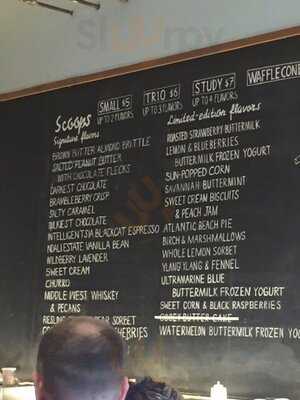 Scoops
Signature flavors
BROWN BUTTER ALMOND BRITTLE
SALTED PEANUT BUTTER
WITH CHOCOLATE FLECKS
DARKEST CHOCOLATE
BRAMBLEBERRY CRISP
SALTY CARAMEL
MILKIEST CHOCOLATE
INTELLIGENTSIA BLACKCAT ESPRESSO
NDALI ESTATE VANILLA BEAN
WILDBERRY LAVENDER
SWEET CREAM
CHURRO
MIDDLE WEST WHISKEY
& PECANS
RIESLING PEAR SORBET
CHERRIES
SMALL $5
UP TO 2 FLAVORS
TRIO $6
UP TO 3 FLAVORS
STUDY $7
UP TO 4 FLAVORS
WAFFLE CONE
Limited-edition flavors
ROASTED STRAWBERRY BUTTERMILK
LEMON & BLUEBERRIES
BUTTERMILK FROZEN YOGURT
SUN-POPPED CORN
SAVANNAH BUTTERMINT
SWEET CREAM BISCUITS
& PEACH JAM
ATLANTIC BEACH PIE
BIRCH & MARSHMALLOWS
WHOLE LEMON SORBET
YLANG YLANG & FENNEL
ULTRAMARINE BLUE
BUTTERMILK FROZEN YOGURT
SWEET CORN & BLACK RASPBERRIES
GOOEY BUTTER CAKE
WATERMELON BUTTERMILK FROZEN YO